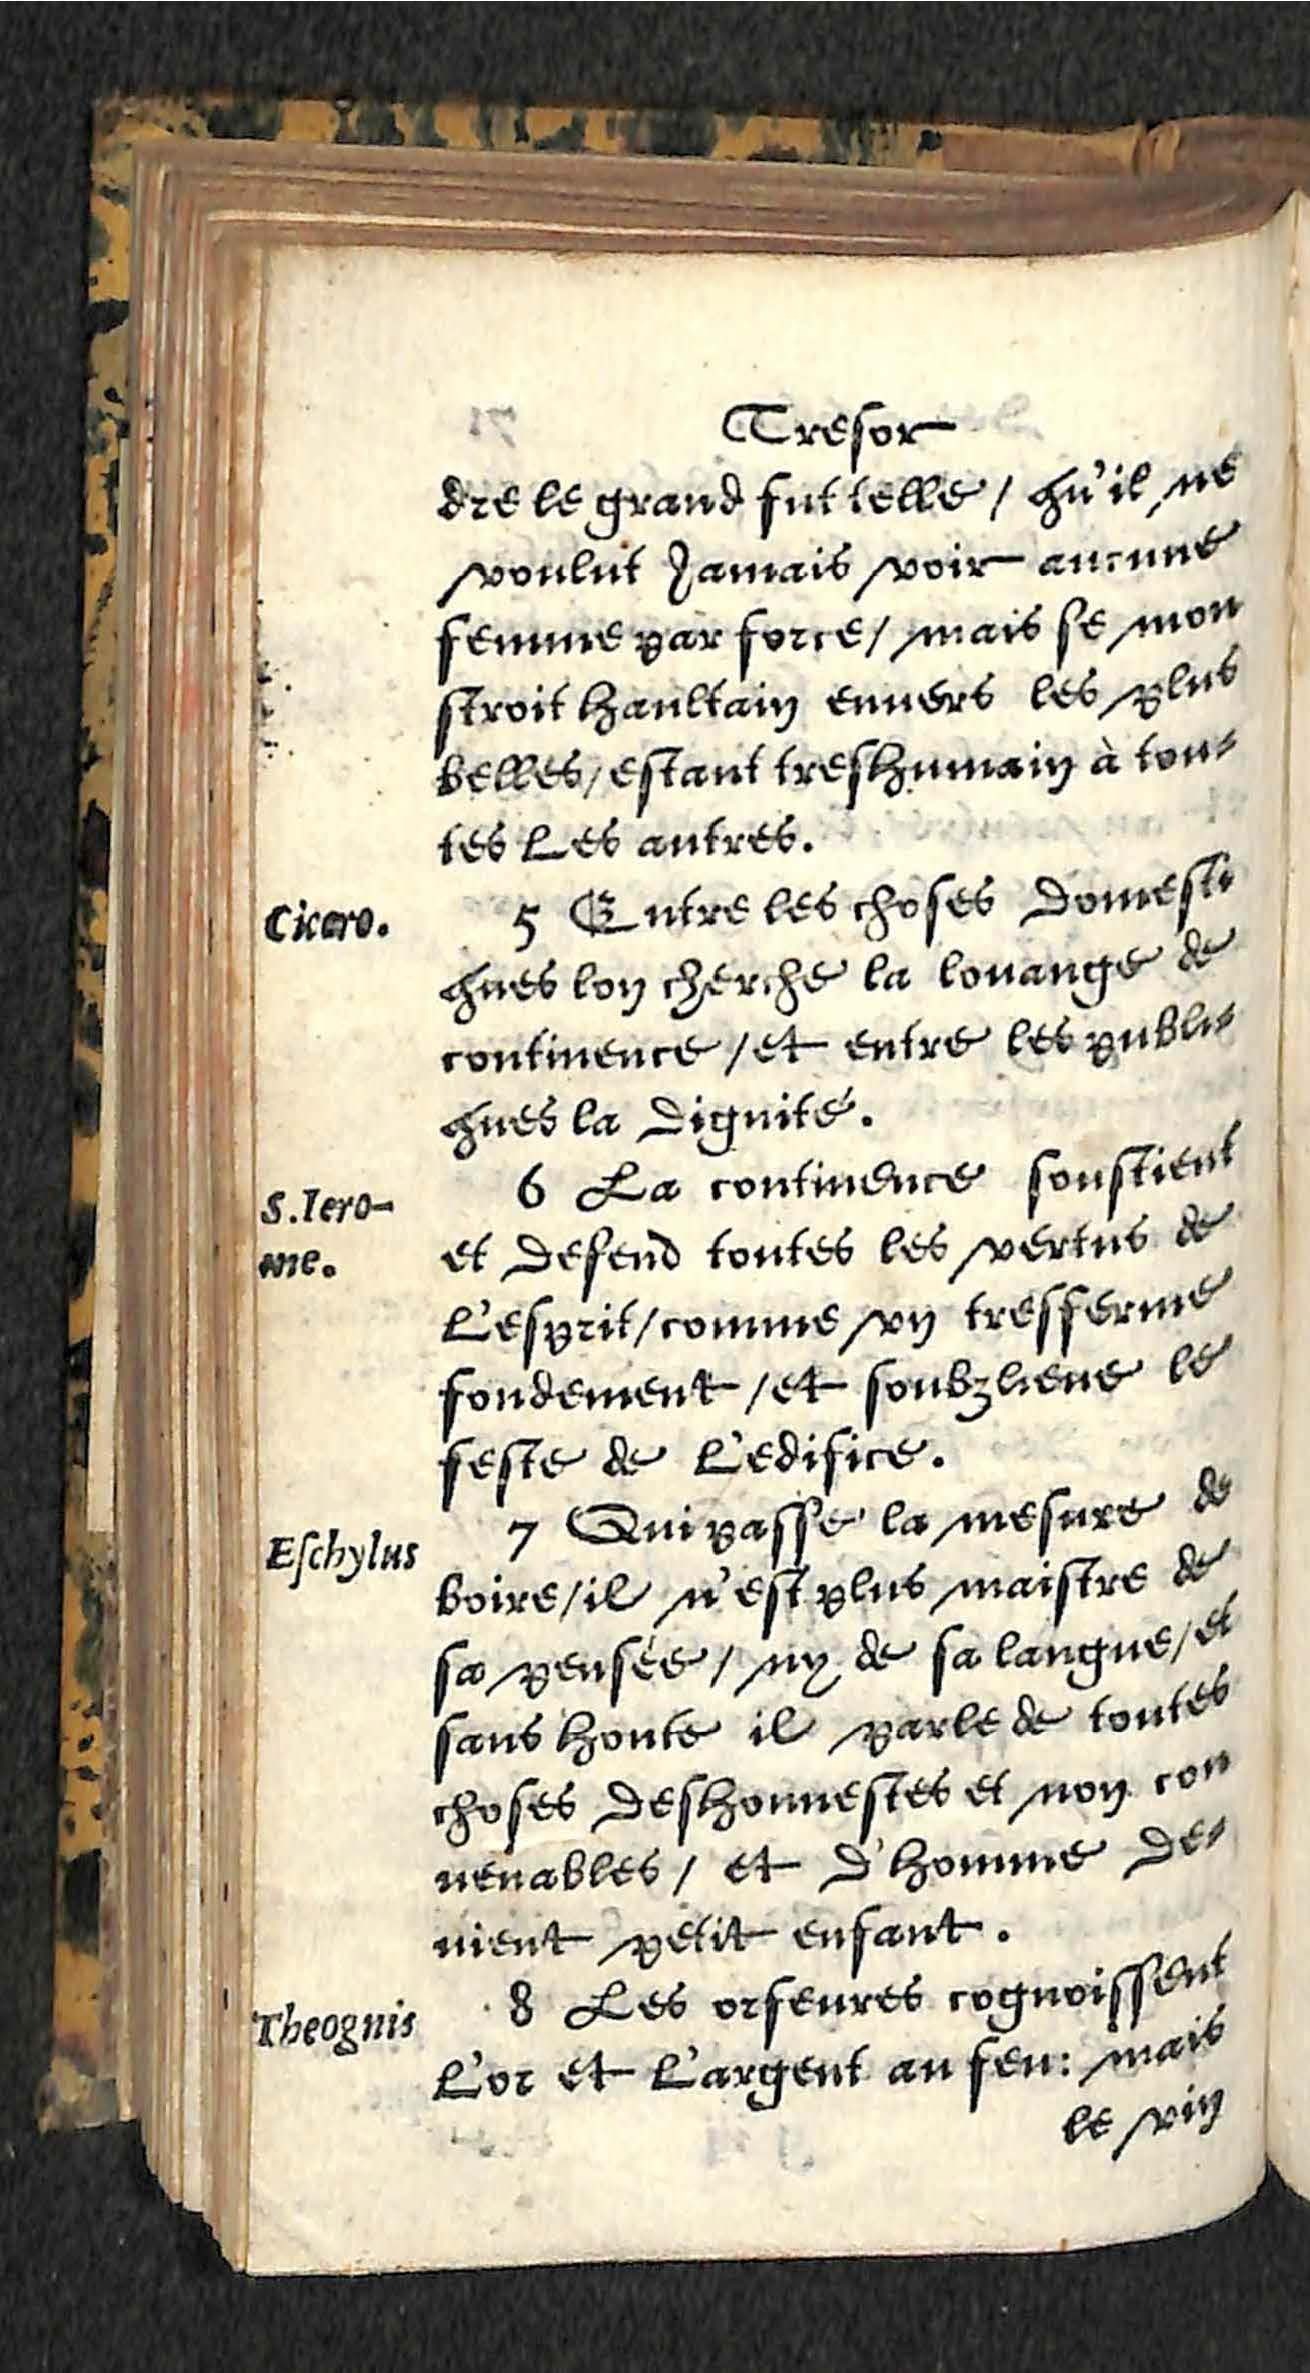 Tresor
dre le grand fut telle / qu'il ne
voulut Jamais voir aucune
femme par force / mais se mon
stroit haultain enuers les plus
belles / estant treshumain à tou-
tes Les autres.
Cicero.
5 Entre les choses Domesti
ques lon cherche la louange de
continence / et entre les publi-
ques la Dignité.
S. Iero-
me.
6 La continence soustient
et Defend toutes les vertus de
L'esprit / comme vn tresferme
fondement / et soubzlieue le
feste de L'edifice.
Eſchylus
7 Qui passe la mesure de
boire / il n'est plus maistre de
sa pensée / ny de sa langue / et
sans honte il parle de toutes
choses Deshonnestes et non con
uenables / et D'homme De-
uient petit enfant.
Theognis
8 Les orfeures cognoissent
L'or et L'argent au feu: mais
le vin